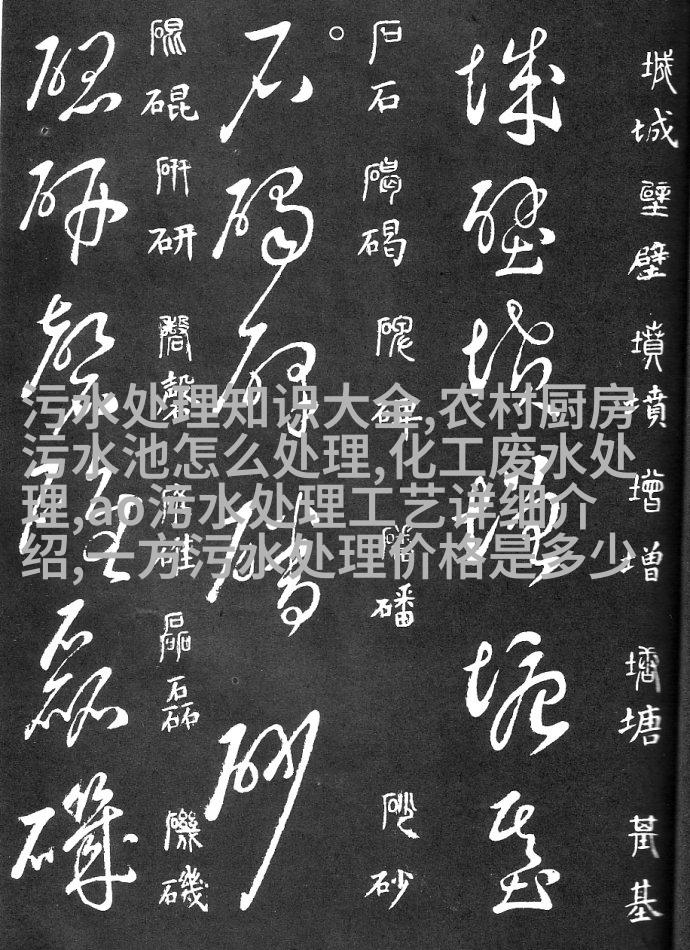 城城壁壁墳墳增增塘塘基基
城壁墳增塘基
石石碣碣碑碑磻磻砂砂
石碣碑磻砂
硍硍研研磬磬確確磊磊磯磯
研磬磊磯
污水处理知识大全,农村厨房
污水池怎么处理,化工废水处
理,ao污水处理工艺详细介
绍,一方污水处理价格是多少